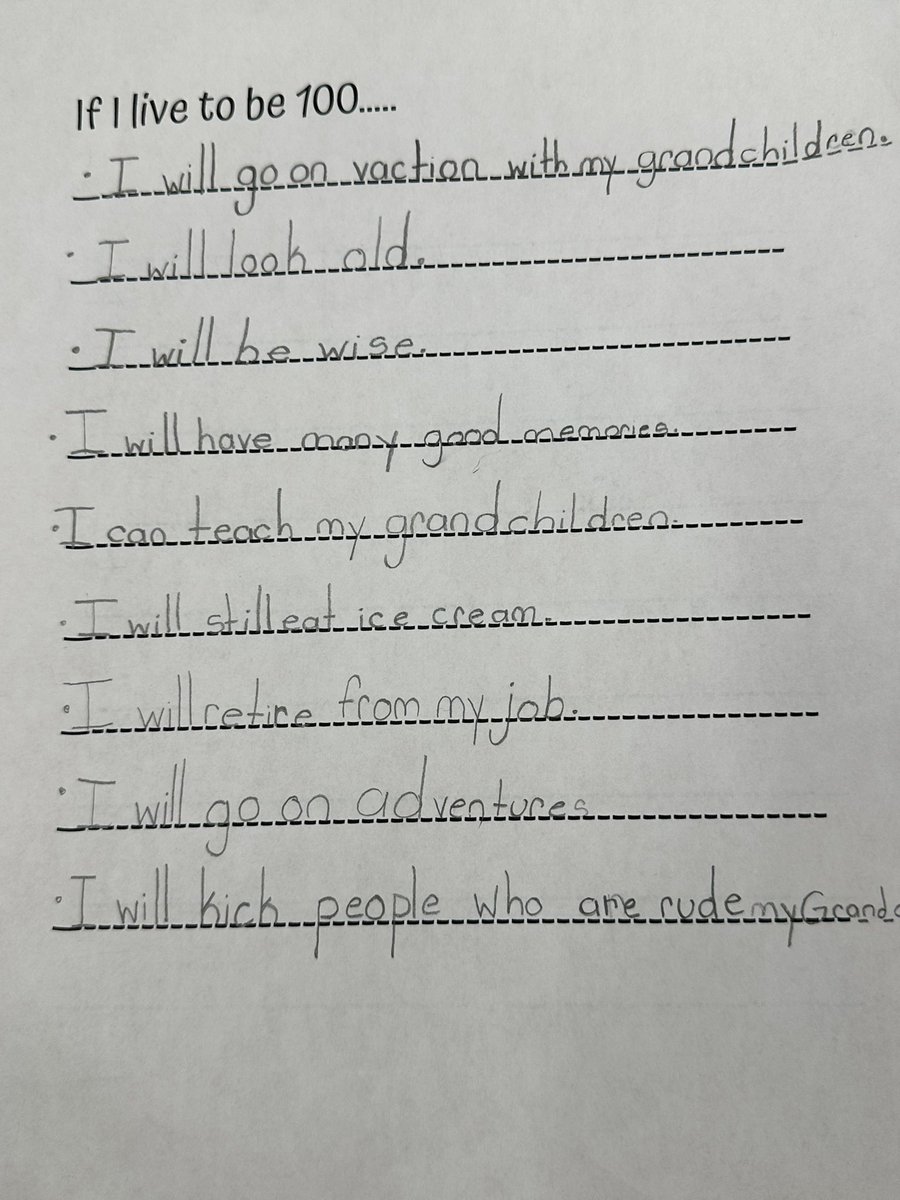 If I live to be 100.....
· I will go on vaction with my grandchildren.
· I will look old.
· I will be wise.
· I will have many good memories.
· I can teach my grandchildren.
· I will still eat ice cream.
· I will retire from my job.
· I will go on adventures
· I will kick people who are rude my